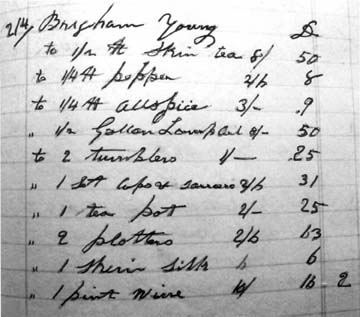 2/14 Brigham Young $
to 1/2 ℔ Skin tea 8/ 50
to 1/4 ℔ pepper 2/6 8
to 1/4 ℔ allspice 3/- .9
" 1/2 Gallon Lamp oil 8/- 50
to 2 tumblers 1/- .25
" 1 Set 31
" 1 tea pot 2/- 25
" 2 platters 2/6 63
" 1 Skein Silk 6 6
" 1 pint wine 16 2